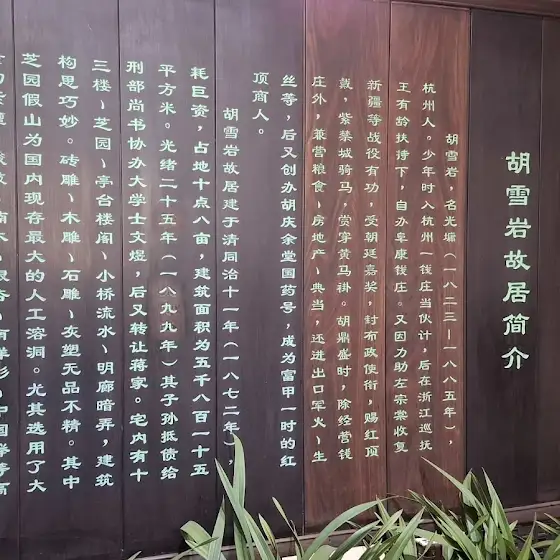 胡雪岩故居简介
胡雪岩,名光墉(一八二三—一八八五年),
杭州人。少年时入杭州一钱庄当伙计,后在浙江巡抚
王有龄扶持下,自办阜康钱庄。又因力助左宗棠收复
新疆等战役有功,受朝廷嘉奖,封布政使衔,赐红顶
戴,紫禁城骑马,赏穿黄马褂。胡鼎盛时,除经营钱
庄外,兼营粮食、房地产、典当,还进出口军火、生
丝等,后又创办胡庆余堂国药号,成为富甲一时的红
顶商人。
胡雪岩故居建于清同治十一年(一八七二年),
耗巨资,占地十点八亩,建筑面积为五千八百一十五
平方米。光绪二十五年(一八九九年)其子孙抵债给
刑部尚书协办大学士文煜,后又转让蒋家。宅内有十
三楼、芝园、亭台楼阁、小桥流水、明廊暗弄,建筑
构思巧妙。砖雕、木雕、石雕、灰塑无品不精。其中
芝园假山为国内现存最大的人工溶洞。尤其选用了大